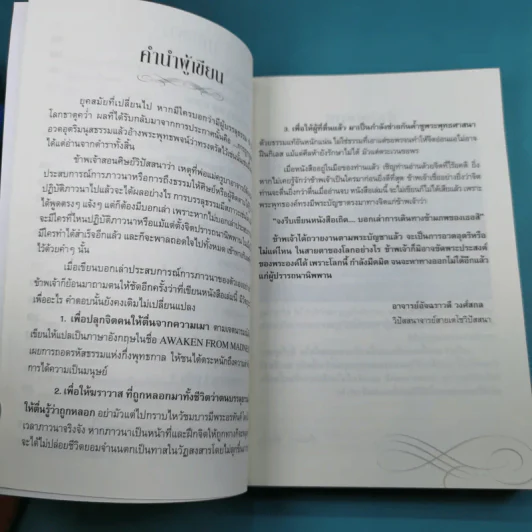 คำนำผู้เขียน
ยุคสมัยที่เปลี่ยนไป หากมีใครบอกว่ามีผู้บรรลุธรรม
โลกธาตุคว่ำ ผลที่ได้รับกลับมาจากการประกาศนั้นคือ
อวดอุตริมนุสธรรมแล้วอ้างพระพุทธพจน์ว่าทรงตรัสไว้เช่นนั้น
ได้แต่อ่านจากตำราทั้งสิ้น
ข้าพเจ้าสอนศิษย์วิปัสสนาว่า เหตุที่พ่อแม่ครูบาอาจารย์
ประสบการณ์การภาวนาหรือการถึงธรรมให้ศิษย์หรือผู้
ปฏิบัติภาวนาไปแล้วจะได้ผลอย่างไร การบรรลุธรรมมีสภาวะ
ได้พูดตรงๆ แจ้งๆ แต่ก็ต้องมีบอกเล่า เพราะหากไม่บอกเล่า
จะมีใครที่ไหนปฏิบัติภาวนาหรือแม้แต่ตั้งจิตปรารถนานิพพาน
มีใครทำได้สำเร็จอีกแล้ว และก็จะพาลถอดใจไปทั้งหมด
ไว้ด้วยคำๆ นั้น
เมื่อเขียนบอกเล่าประสบการณ์การภาวนาของตัวเอง
ข้าพเจ้าก็ย้อนมาถามตนให้ชัดอีกครั้งว่าที่เขียนหนังสือเล่มนี้
เพื่ออะไร คำตอบนั้นยังคงเดิมไม่เปลี่ยนแปลง
1. เพื่อปลุกจิตคนให้ตื่นจากความเมา ตาม
เขียนให้แปลเป็นภาษาอังกฤษในชื่อ AWAKEN FROM MADNESS
เผยการถอดรหัสธรรมแห่งกึ่งพุทธกาล ให้ชนได้ตระหนักถึง
การได้ความเป็นมนุษย์
2. เพื่อให้ฆราวาส ที่ถูกหลอกมาทั้งชีวิตว่าตนบรรลุ
ให้ตื่นรู้ว่าถูกหลอก อย่ามัวแต่ไปกราบไหว้ชมบารมีพระอรหันต์
เวลาภาวนาจริงจัง หากภาวนาเป็นหน้าที่และฝึกจิตให้ถูกทาง
จะได้ไม่ปล่อยชีวิตยอมจำนนตกเป็นทาสในวัฏสงสารโดยไม่ลุกขึ้น
3. เพื่อให้ผู้ที่ตื่นแล้ว มาเป็นกำลังช่วยกันค้ำชูพระพุทธศาสนา
ด้วยธรรมแท้อันหนักแน่น ไม่ใช่ธรรมที่เอาแต่ชอบพรรณนาทำให้จิตอ่อนแอไม่อาจ
ฝืนกิเลส แม้แต่ศีลห้ายังรักษาไม่ได้ มัวแต่พระเวนยกพระ
เมื่อหนังสืออยู่ในมือของท่านแล้ว เชิญท่านอ่านด้วยจิตที่ไร้อคติ ยิ่ง
หากไม่เคยรู้จักว่าข้าพเจ้าเป็นใครมาก่อนยิ่งดีที่สุด ข้าพเจ้าเชื่ออย่างยิ่งว่าจิต
ท่านจะตื่นยิ่งกว่าตื่นเมื่ออ่านจบ หนังสือเล่มนี้ จะไม่เขียนก็ไม่ได้เสียแล้ว เพราะ
พระพุทธองค์ทรงมีพระบัญชาตรงทางจิตแก่ข้าพเจ้าว่า
"จงรีบเขียนหนังสือเถิด... บอกเล่าการเดินทางข้ามภพของเธอสิ"
ข้าพเจ้าได้ถวายงานตามพระบัญชาแล้ว จะเป็นการอวดอุตริหรือ
ไม่แค่ไหน ในสายตาของโลกอย่างไร ข้าพเจ้าก็มิอาจขัดพระประสงค์
ของพระองค์ได้ เพราะโลกนี้ กำลังมืดมิด จนจะหาทางออกไม่ได้อีกแล้ว
แก่ผู้ปรารถนานิพพาน
อาจารย์อัจฉราวดี วงศ์สกล
วิปัสสนาจารย์สายเตโชวิปัสสนา